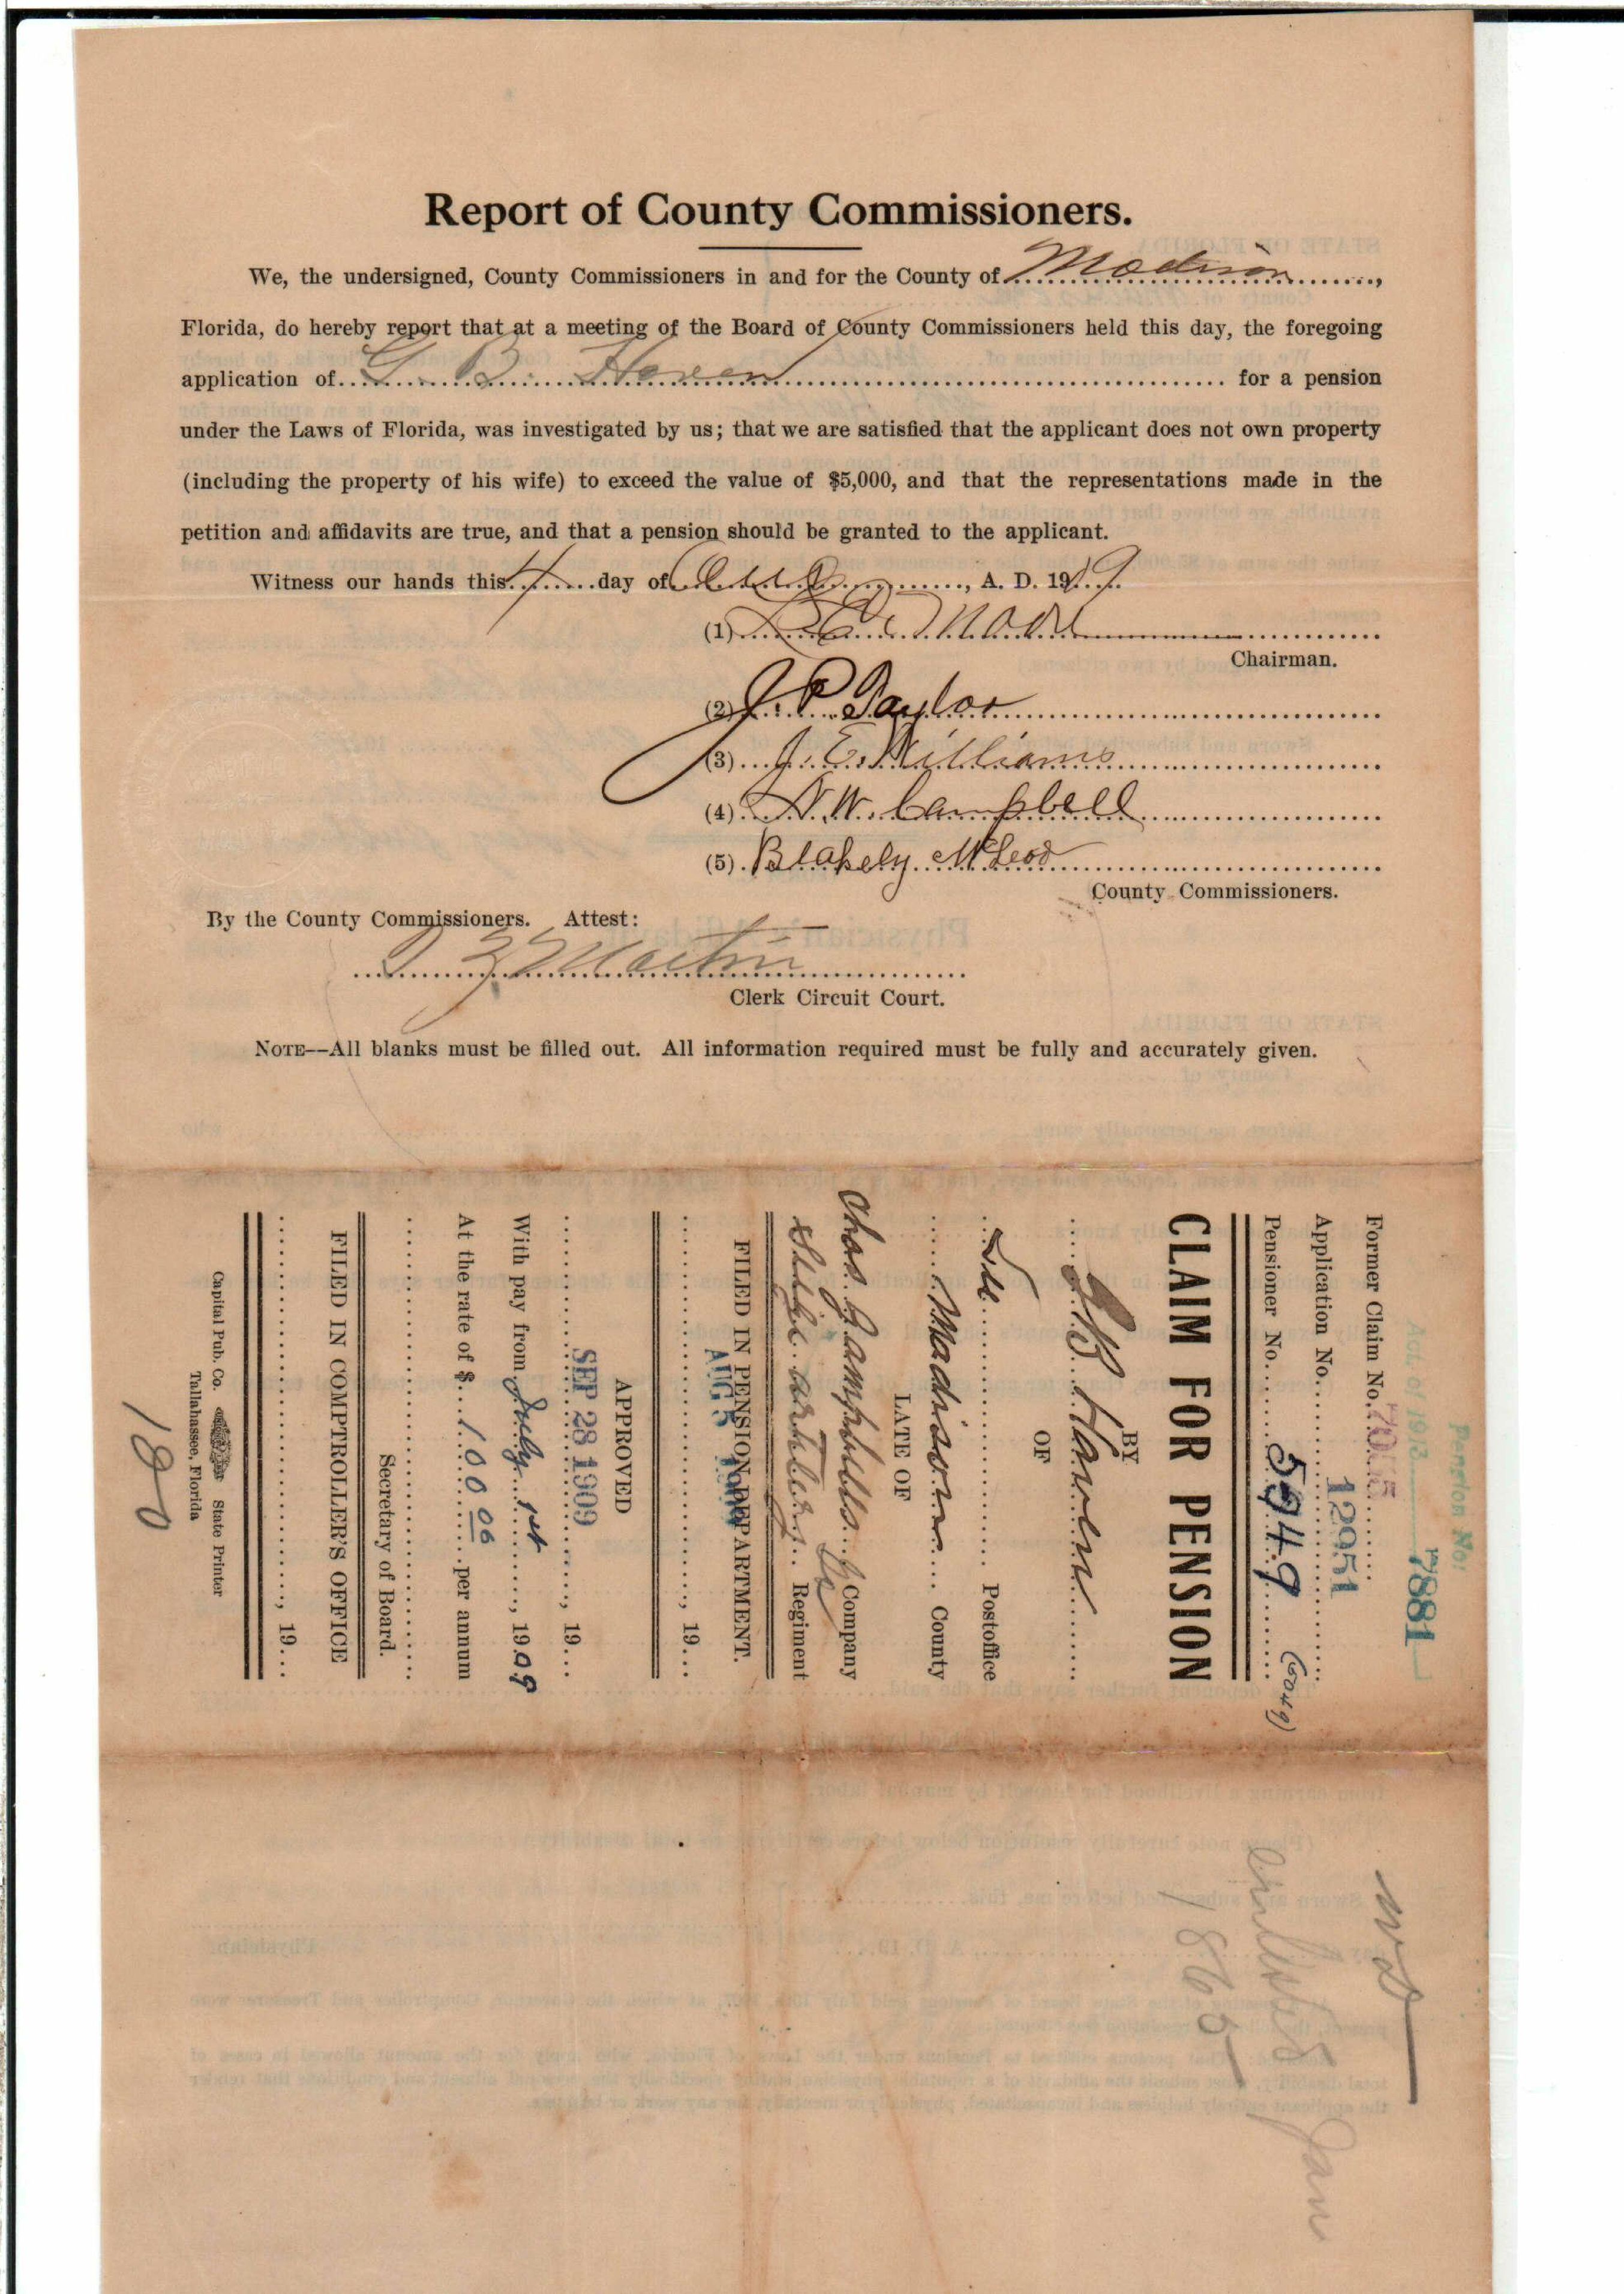 Report of County Commissioners.
We, the undersigned, County Commissioners in and for the County of Madison,
Florida, do hereby report that at a meeting of the Board of County Commissioners held this day, the foregoing
application of G. B. Haven for a pension
under the Laws of Florida, was investigated by us; that we are satisfied that the applicant does not own property
(including the property of his wife) to exceed the value of $5,000, and that the representations made in the
petition and affidavits are true, and that a pension should be granted to the applicant.
Witness our hands this 4 day of Aug, A. D. 1909.
(1) Moore
Chairman.
(2) J. P. Taylor
(3) J. E. Williams
(4) N. W. Campbell
(5) Blakely McLeod
County Commissioners.
By the County Commissioners. Attest:
Martin
Clerk Circuit Court.
NOTE--All blanks must be filled out. All information required must be fully and accurately given.
Pension No.
Act of 1913 7881
Former Claim No. 7015
Application No. 12951
Pensioner No. 5949
CLAIM FOR PENSION
BY
G B Haven
OF
Postoffice
Madison County
LATE OF
Chas Campbells Company
Regiment
FILED IN PENSION DEPARTMENT.
AUG 5 1909
19
APPROVED
SEP 28 1909
19
With pay from July 1st, 1909
At the rate of $ 100 00 per annum
Secretary of Board.
FILED IN COMPTROLLER'S OFFICE
19
Capital Pub. Co. State Printer
Tallahassee, Florida
180
WD
enlisted Jan
1865